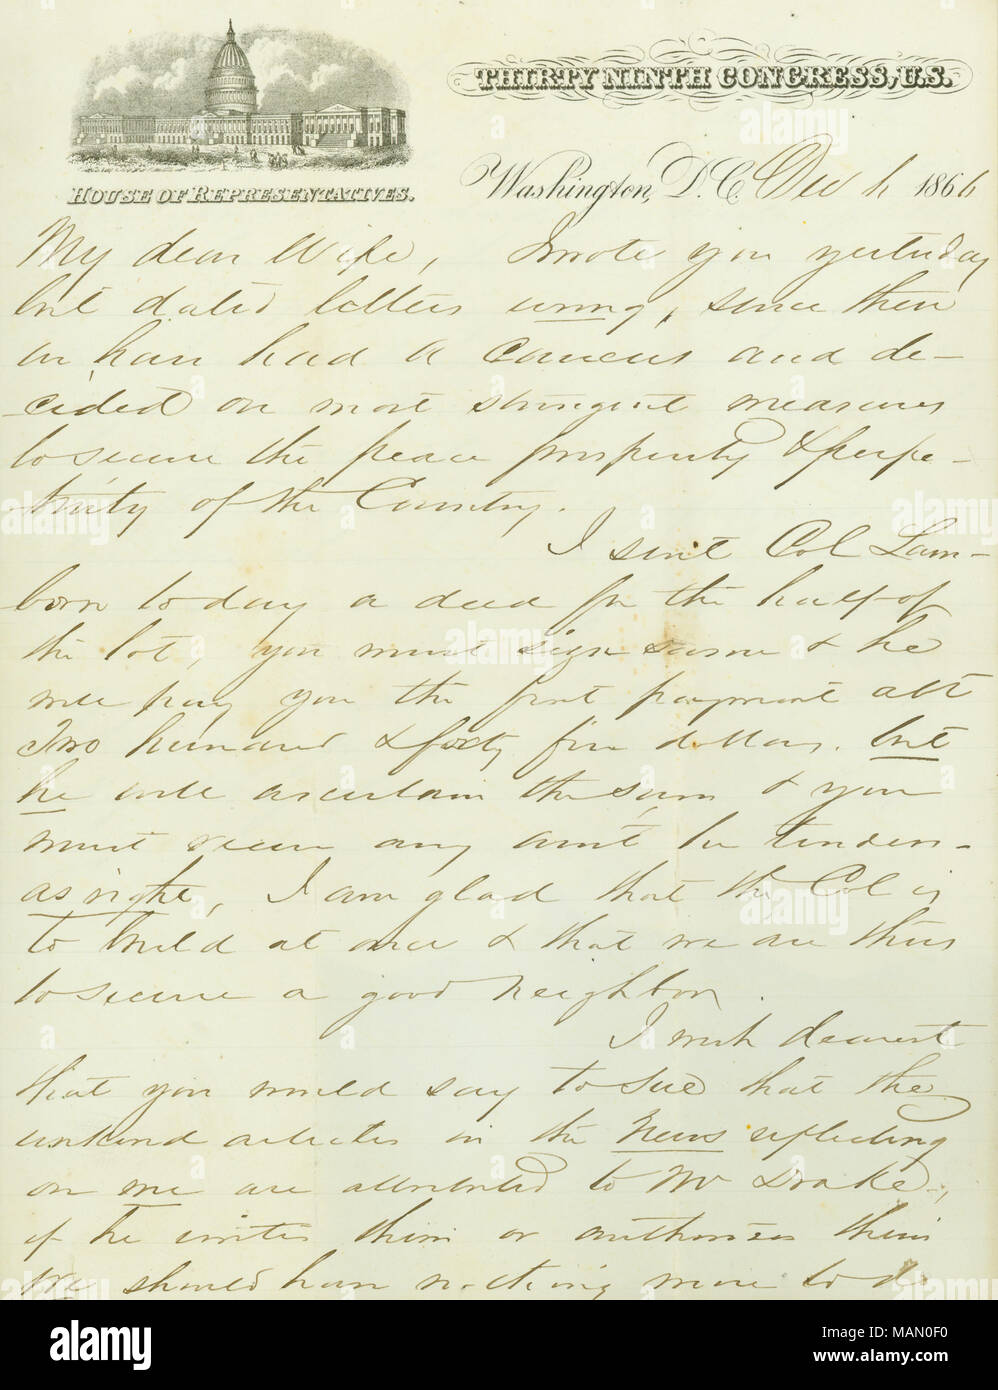 THIRTY NINTH CONGRESS, U.S.
HOUSE OF REPRESENTATIVES.
Washington, D.C. Dec 6 1866
My dear Wife, I wrote you yesterday
but dated letters wrong, since then
we have had a caucus and de-
cided on most stringent measures
to secure the peace prosperity & perpe-
tuity of the Country.
I sent Col Lam-
born today a deed for the half of
the lot, you must sign same & he
will pay you the first payment abt
Two hundred & forty five dollars. but
he will ascertain the sum & you
must receive any amt he tenders
as right, I am glad that the Col is
to build at once & that we are thus
to secure a good neighbor.
I wish dearest
that you would say to Sue that the
unkind articles in the News reflecting
on me are attributed to Mr Drake,
if he writes them or authorizes them
We should have nothing more to do
alamy
Image ID: MAN0F0
www.alamy.com